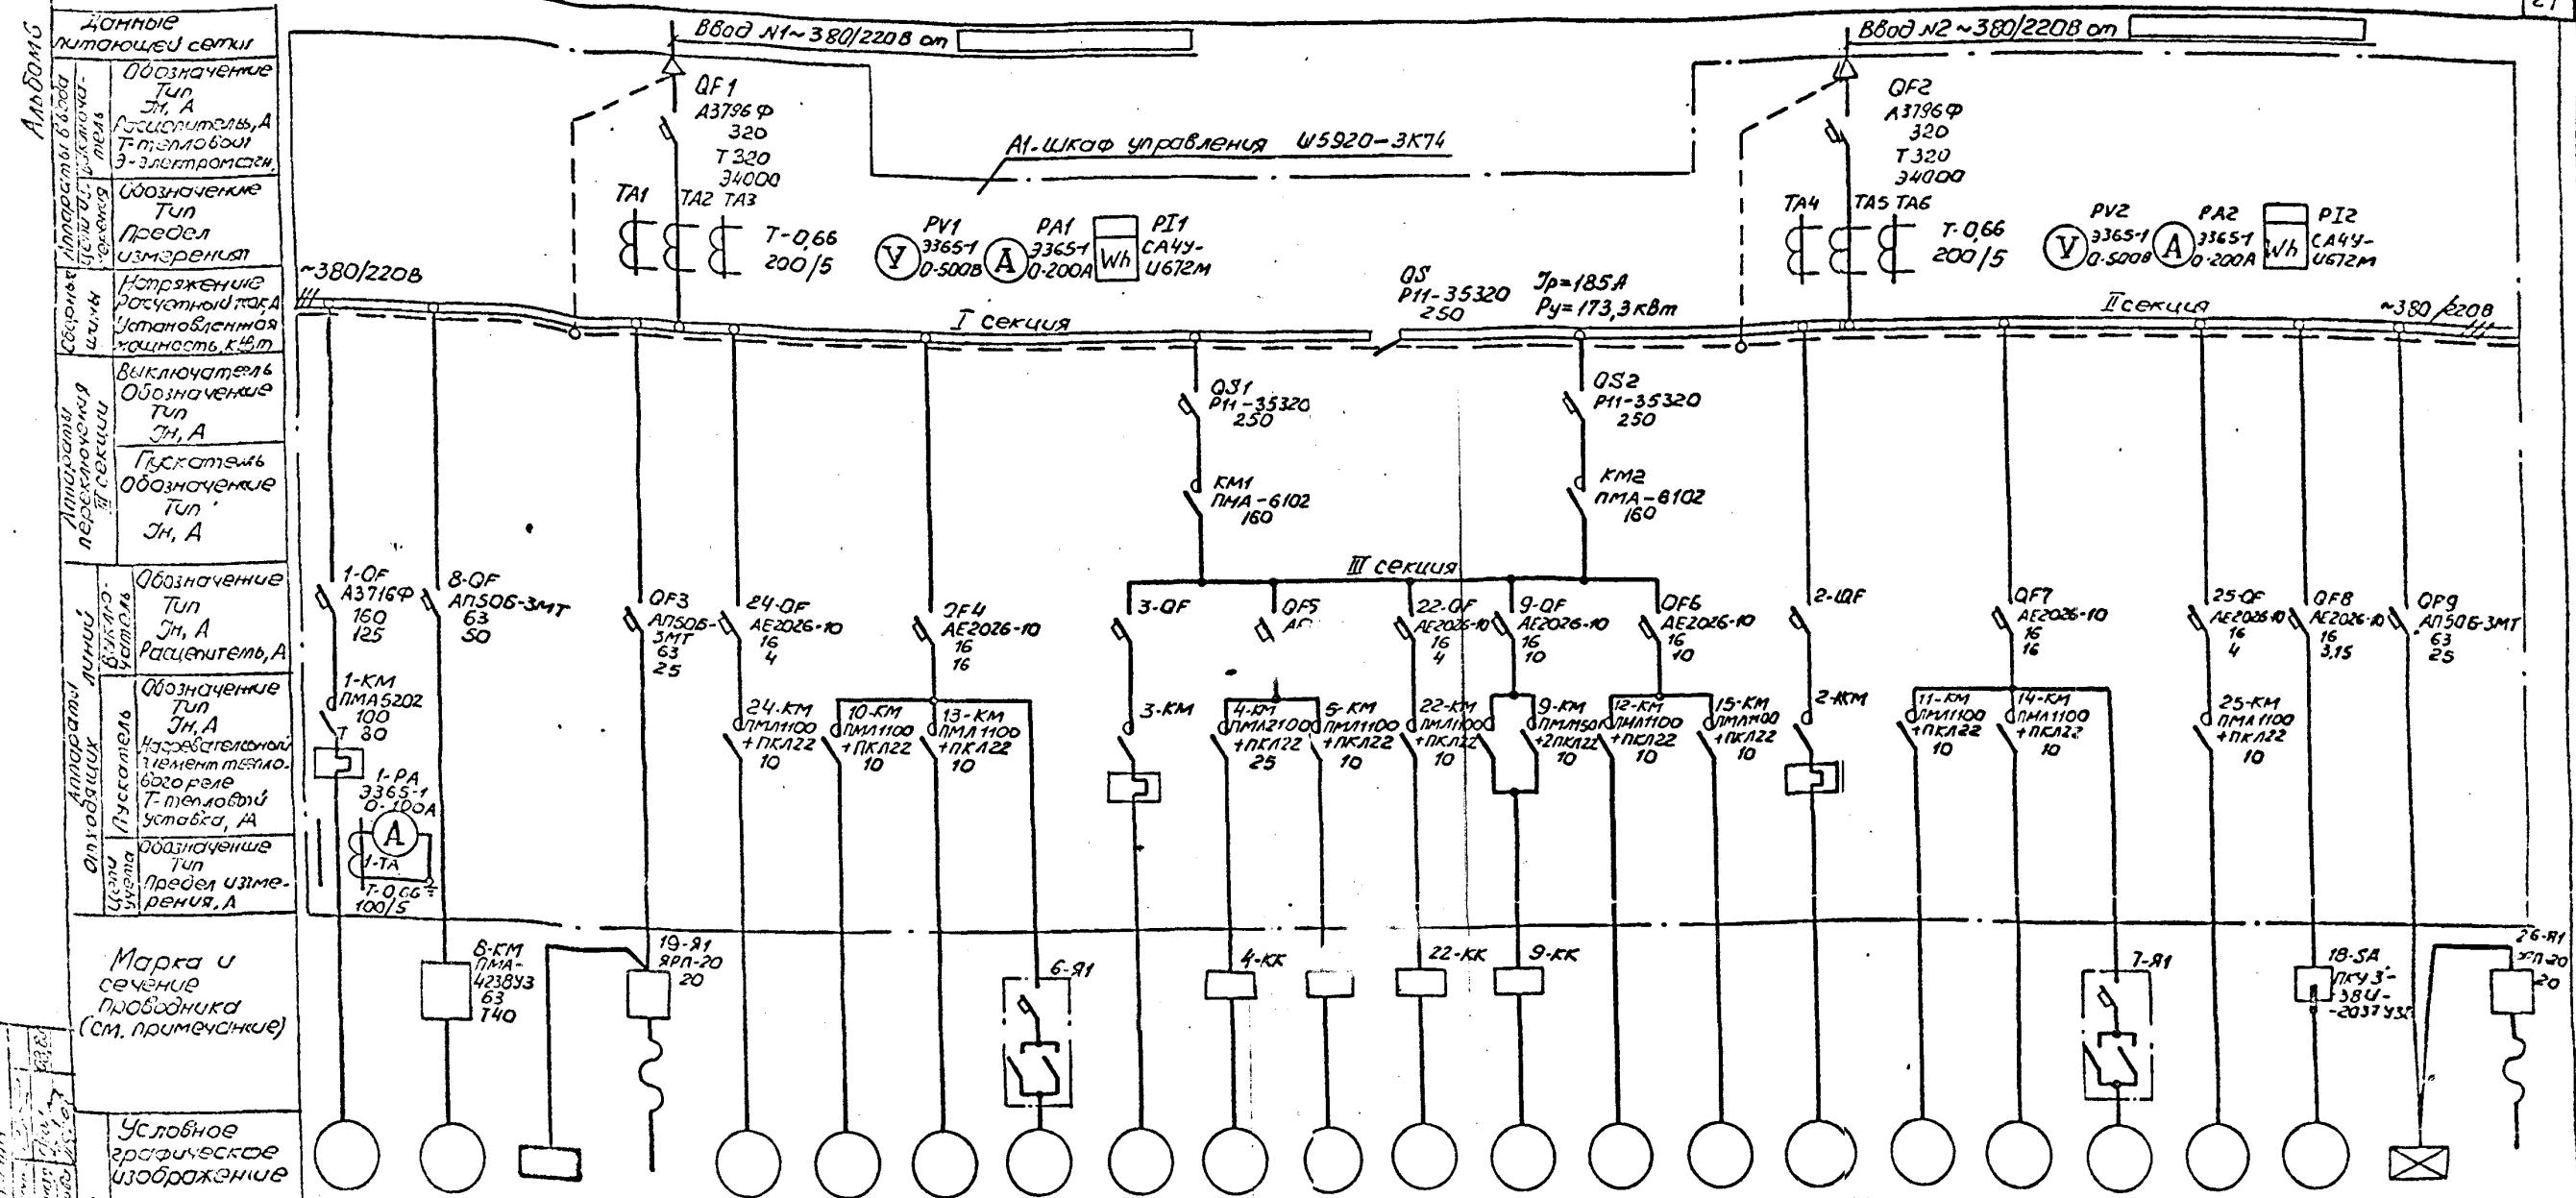 Альбом 6
21
Данные
питающей сети
Аппараты ввода
Выключатель
Обозначение
Тип
Iн, А
Расцепитель, А
Т-тепловой
Э-электромагн.
Обозначение
Тип
Предел
измерения
Сборные
шины
Напряжение
Расчетный ток, А
Установленная
мощность, кВт
Аппараты
переключения
III секции
Выключатель
Обозначение
Тип
Iн, А
Пускатель
Обозначение
Тип
Iн, А
Аппараты
отходящих линий
Выключатель
Обозначение
Тип
Iн, А
Расцепитель, А
Пускатель
Обозначение
Тип
Iн, А
Нагревательный
элемент тепло-
вого реле
Т-тепловой
уставка, А
Цепи
учета
Обозначение
Тип
Предел изме-
рения, А
Марка и
сечение
проводника
(см. примечание)
Условное
графическое
изображение
Ввод N1~380/220В от
Ввод N2~380/220В от
А1-шкаф управления Ш5920-3К74
QF1
А3796Ф
320
Т320
Э4000
TA1 TA2 TA3
Т-0,66
200/5
V
PV1
Э365-1
0-500В
A
PA1
Э365-1
0-200А
Wh
PI1
СА4У-
И672М
QF2
А3796Ф
320
Т320
Э4000
TA4 TA5 TA6
Т-0,66
200/5
V
PV2
Э365-1
0-500В
A
PA2
Э365-1
0-200А
Wh
PI2
СА4У-
И672М
~380/220В
I секция
QS
Р11-35320
250
Iр=185А
Ру=173,3кВт
II секция
~380/220В
QS1
Р11-35320
250
QS2
Р11-35320
250
КМ1
ПМА-6102
160
КМ2
ПМА-6102
160
III секция
1-QF
А3716Ф
160
125
8-QF
АП50Б-3МТ
63
50
QF3
АП50Б-
3МТ
63
25
24-QF
АЕ2026-10
16
4
QF4
АЕ2026-10
16
16
3-QF
QF5
22-QF
АЕ2026-10
16
4
9-QF
АЕ2026-10
16
10
QF6
АЕ2026-10
16
10
2-QF
QF7
АЕ2026-10
16
16
25-QF
АЕ2026-10
16
4
QF8
АЕ2026-10
16
3,15
QF9
АП50Б-3МТ
63
25
1-КМ
ПМА5202
100
Т 80
1-РА
Э365-1
0-100А
A
1-ТА
Т-0,66
100/5
24-КМ
ПМЛ1100
+ПКЛ22
10
10-КМ
ПМЛ1100
+ПКЛ22
10
13-КМ
ПМЛ1100
+ПКЛ22
10
3-КМ
4-КМ
ПМЛ2100
+ПКЛ22
25
5-КМ
ПМЛ1100
+ПКЛ22
10
22-КМ
ПМЛ1100
+ПКЛ22
10
9-КМ
ПМЛ1501
+2ПКЛ22
10
12-КМ
ПМЛ1100
+ПКЛ22
10
15-КМ
ПМЛ1100
+ПКЛ22
10
2-КМ
11-КМ
ПМЛ1100
+ПКЛ22
10
14-КМ
ПМЛ1100
+ПКЛ22
10
25-КМ
ПМЛ1100
+ПКЛ22
10
8-КМ
ПМА-
4238У3
63
Т40
19-Я1
ЯРП-20
20
6-Я1
4-КК
22-КК
9-КК
7-Я1
18-SA
ПКУ3-
-38И-
-2037У3
26-Я1
ЯРП-20
20